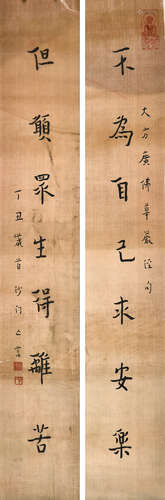 大方廣佛華嚴經句
不為自己求安樂
但願眾生得離苦
丁丑歲首沙門一音